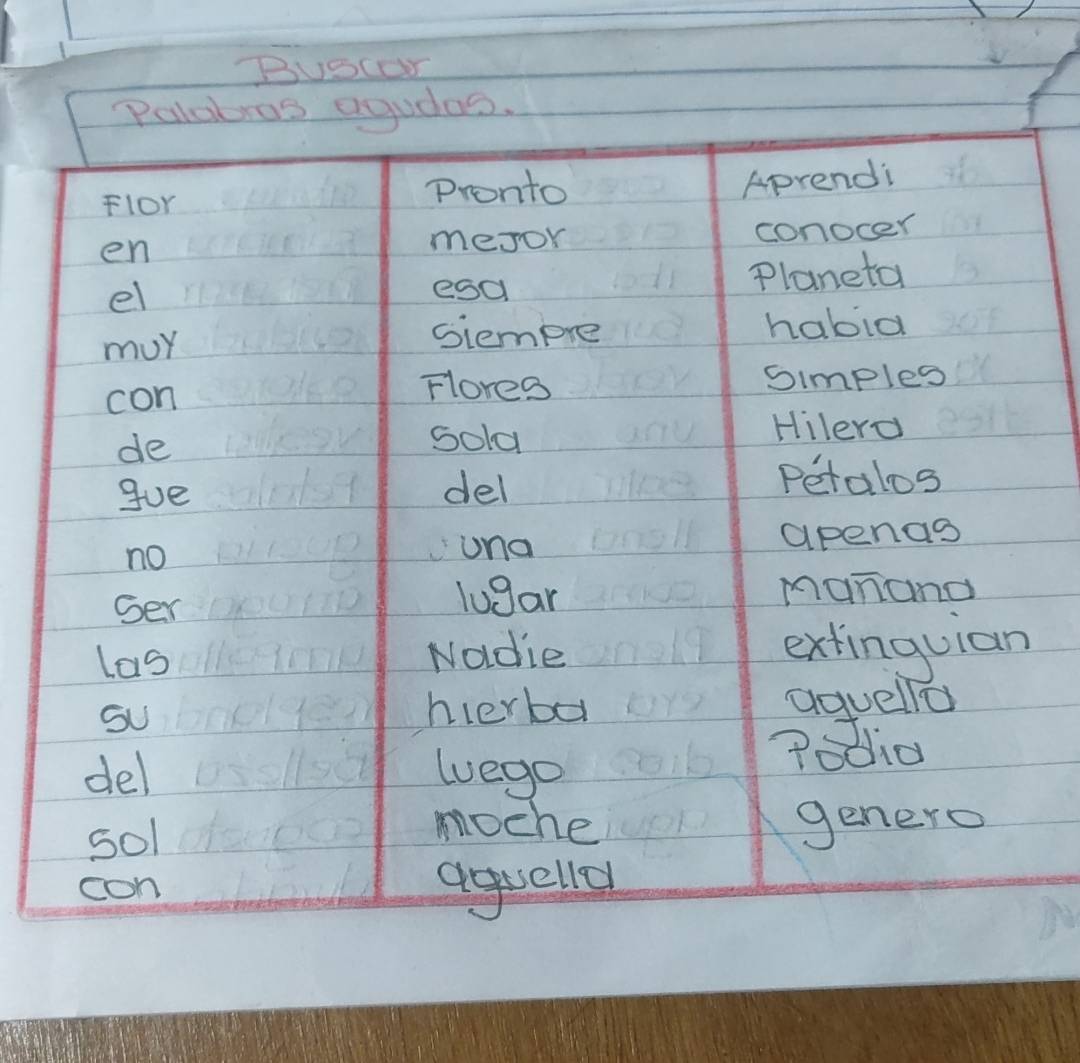 Buscar
Palabras agudas.
Flor Pronto Aprendi
en mejor conocer
el esa Planeta
muy siempre habia
con Flores simples
de sola Hilera
que del Pétalos
no una apenas
ser lugar Mañana
las Nadie extinguian
su hierba aquella
del luego Podia
sol moche genero
con aquella